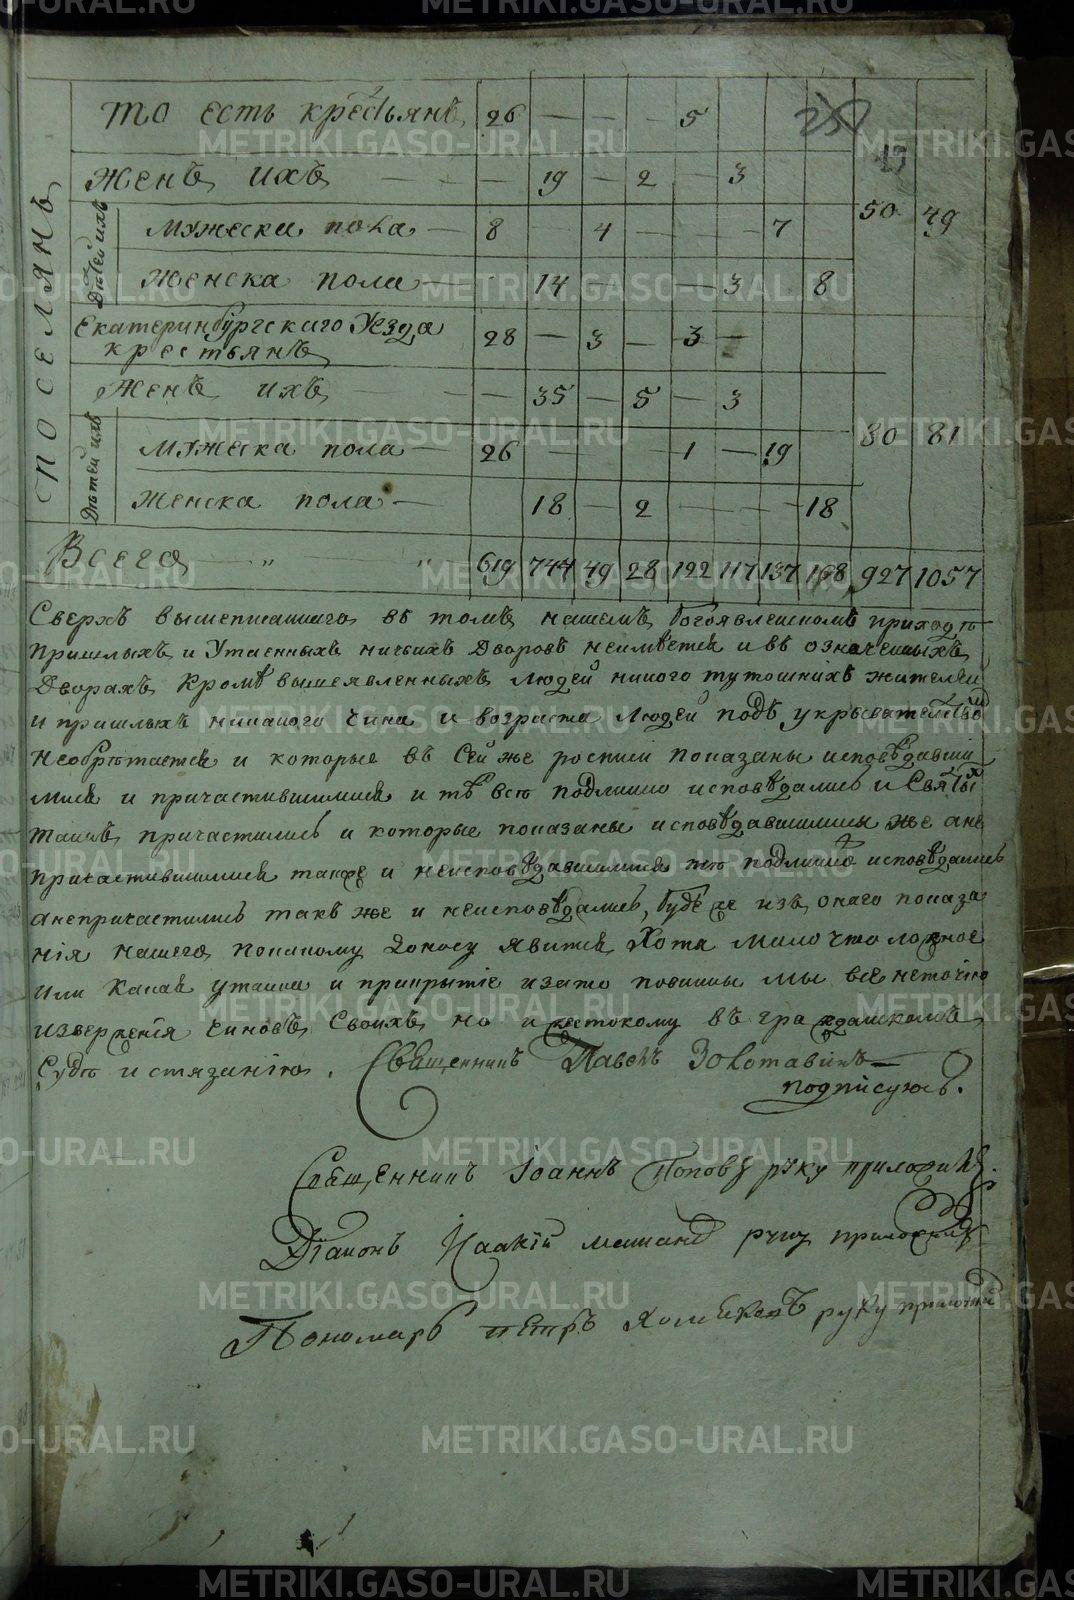 METRIKI.GASO-URAL.RU
то есть крестьянъ 26 — — — 5
257
49
Женъ ихъ — — — 19 — 2 — 3
поселянъ
Дѣтей ихъ
мужеска пола — 8 4 — — 7 50 49
женска пола — 14 — — 3 8
Екатеринбургскаго Уезда
крестьянъ 28 — 3 — 3 —
Женъ ихъ — — 35 — 5 — 3
Дѣтей ихъ
мужеска пола — 26 — — 1 — 19 80 81
женска пола — 18 — 2 — — — 18
Всего — " — " — 619 744 49 28 122 117 137 168 927 1057
Сверхъ вышеписаннаго въ томъ нашемъ Богоявленскомъ приходѣ
пришлыхъ и утаенныхъ ничьихъ дворовъ неимѣется и въ означенныхъ
дворахъ кромѣ вышеявленныхъ людей никого тутошнихъ жителей
и пришлыхъ никакого чина и возраста людей подъ укрывательством
необрѣтается и которые въ сей же росписи показаны исповѣдавши
мися и причастившимися и тѣ всѣ подлинно исповѣдались и Святых
таинъ причастились и которые показаны исповѣдавшимися же а не
причастившимися также и неисповѣдавшимися тѣ подлинно исповѣдались
а непричастились такъ же и неисповѣдались, буде же изъ онаго показа
нія нашего по какому доносу явится хотя мало что ложное
или какая утайка и прикрытіе и зато повинны мы все не точію
изверженія чиновъ своихъ но и жестокому въ гражданскомъ
судѣ истязанію. Священникъ Павелъ Золотавинъ —
подписуюсь.
Священникъ Іоаннъ Поповъ руку приложилъ.
Діаконъ Исакій руку приложилъ
Пономарь Петръ руку приложилъ